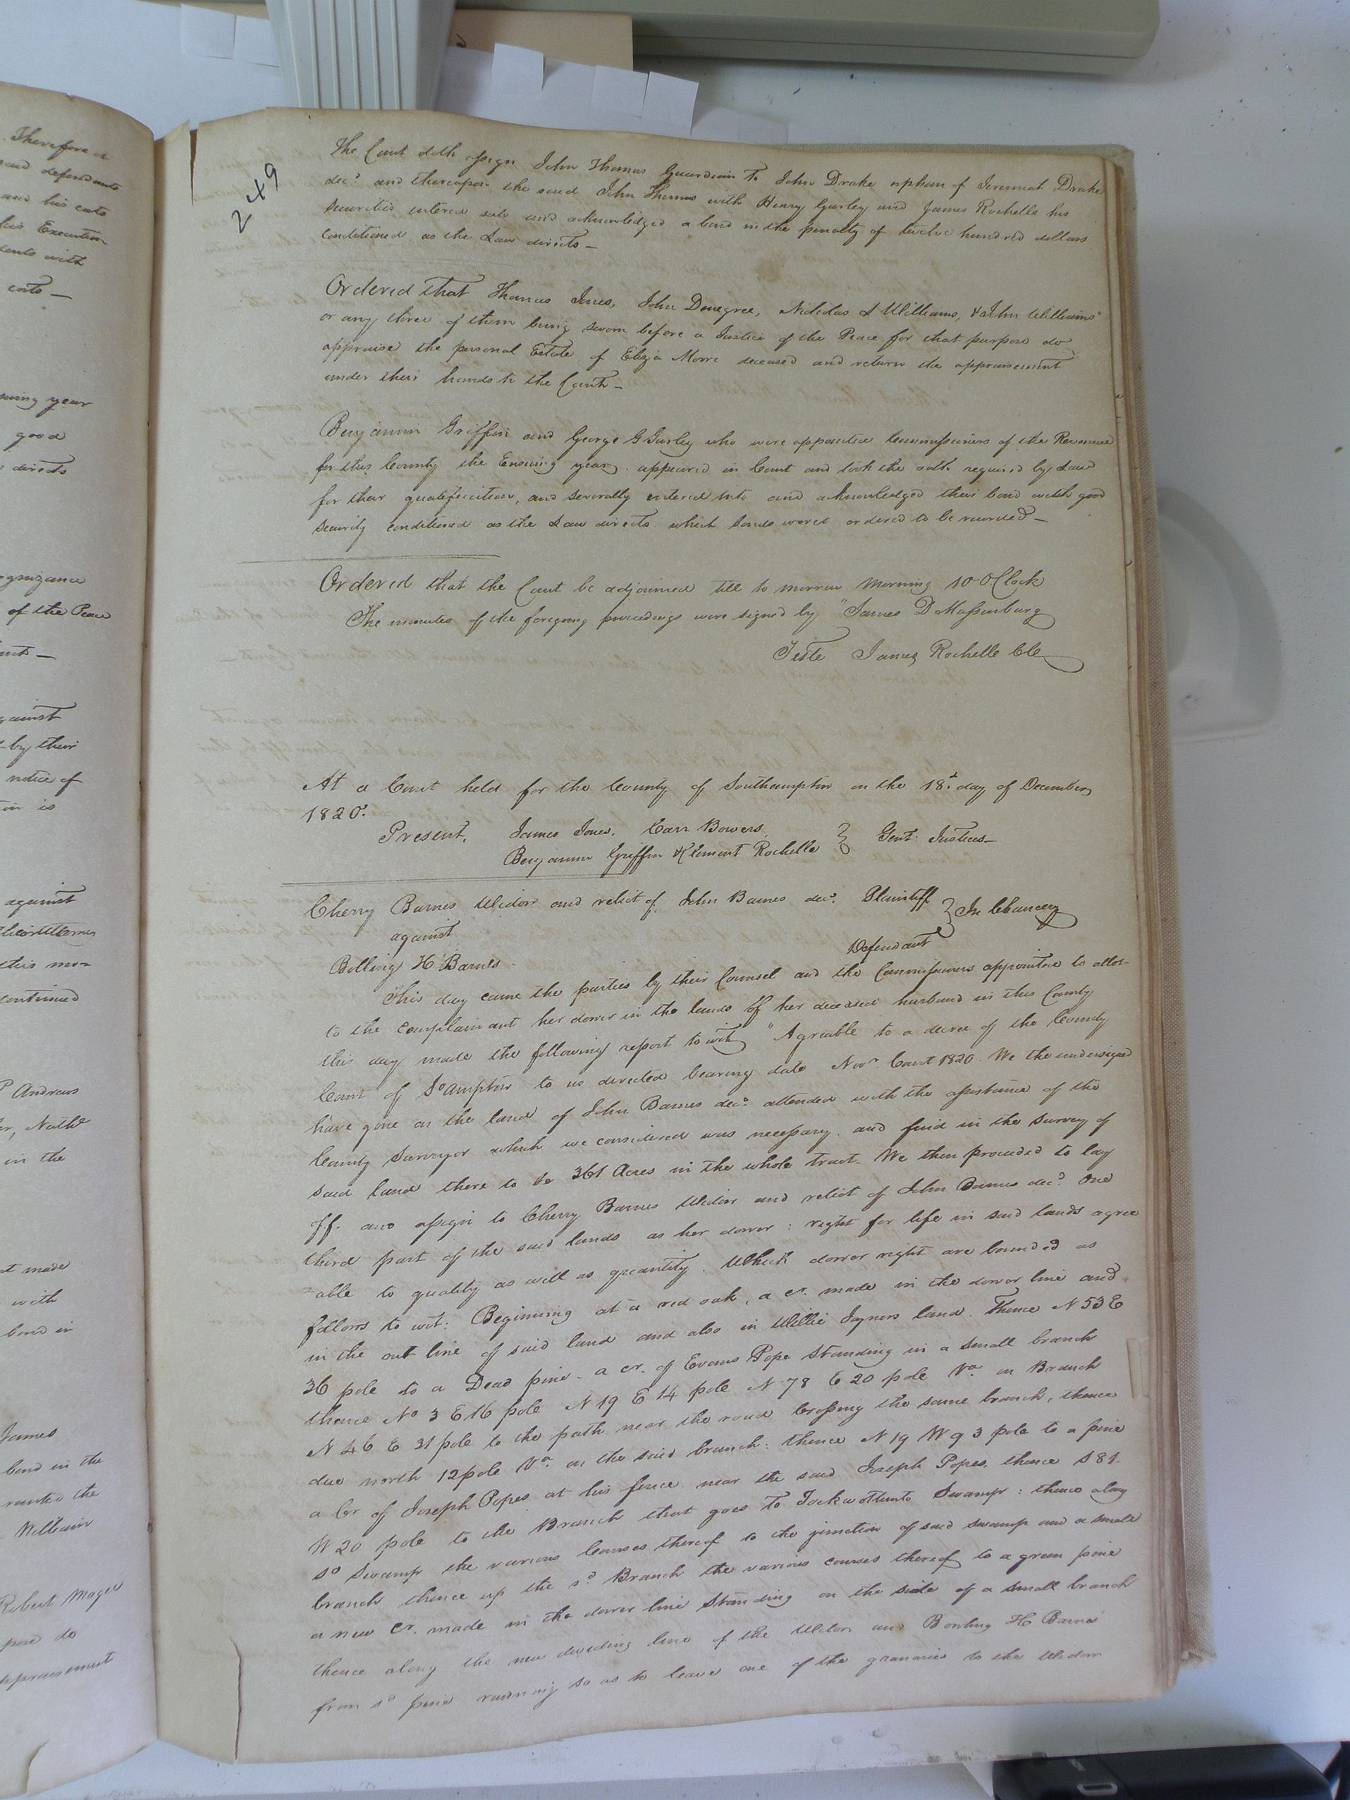 Therefore it
said defendants
and his costs
his Execution
dents with
costs —
suing year
good
directs
ognizance
of the Peace
against
by their
notice of
is
against
this mon
continued
P Andrews
in the
made
with
bond in
James
bond in the
William
Robert Mager
do
appraisement
249
The Court doth assign John Thomas Guardian to John Drake orphan of Jeremiah Drake
decd and thereupon the said John Thomas with Henry Gurley and James Rochelle his
securities entered into and acknowledged a bond in the penalty of twelve hundred dollars
conditioned as the Law directs —
Ordered that Thomas Jones, John Denegree, Nicholas Williams, & John Williams
or any three of them being sworn before a Justice of the Peace for that purpose do
appraise the personal Estate of Eliza Morre deceased and return the appraisement
under their hands to the Court —
Benjamin Griffin and George G Gurley who were appointed Commissioners of the Revenue
for this County the Ensuing year appeared in Court and took the oath required by Law
for their qualification, and severally entered into and acknowledged their bond with good
security conditioned as the Law directs which bonds were ordered to be recorded —
Ordered that the Court be adjourned till to morrow Morning 10 O Clock
The minutes of the foregoing proceedings were signed by "James D Massenburg
Teste James Rochelle Clk
At a Court held for the County of Southampton on the 18t day of December
1820.
Present, James Jones, Carr Bowers,
Benjamin Griffin & Clement Rochelle } Gent. Justices —
Cherry Barnes Widow and relict of John Barnes decd. Plaintiff } In Chancery
against
Defendant
Bolling H Barnes
This day came the parties by their Counsel and the Commissioners appointed to allot
to the complainant her dower in the lands of her deceased husband in this County
this day made the following report to wit "Agreable to a decree of the County
Court of So.ampton to us directed bearing date Novr Court 1820. We the undersigned
have gone on the land of John Barnes decd. attended with the assistance of the
County Surveyor which we considered was necessary and find in the survey of
said land there to be 361 Acres in the whole tract. We then proceeded to lay
off and assign to Cherry Barnes Widow and relict of John Barnes decd One
third part of the said lands as her dower right for life in said lands agree
=able to quality as well as quantity. Which dower right are bounded as
follows to wit: Beginning at a red oak, a cr. made in the dower line and
in the out line of said land and also in Willie Joyners land. Thence N 53 E
36 pole to a Dead pine - a cr. of Evans Pope Standing in a small branch
thence No 3 E 16 pole N 19 E 14 pole N 78 E 20 pole Va. on Branch
N 46 E 31 pole to the path near the road Crossing the same branch, thence
due north 12 pole Va. on the said branch: thence N 19 W 93 pole to a pine
a Cr of Joseph Popes at his fence near the said Joseph Popes, thence S 81.
W 20 pole to the Branch that goes to Swamp: thence along
sd Swamp the various Courses thereof to the junction of said swamp and a small
branch thence up the sd Branch the various courses thereof to a green pine
a new Cr. made in the dower line Standing on the side of a small branch
thence along the new dividing line of the Widow and Bowling H Barnes
from sd pine running so as to leave one of the granaries to the Widow